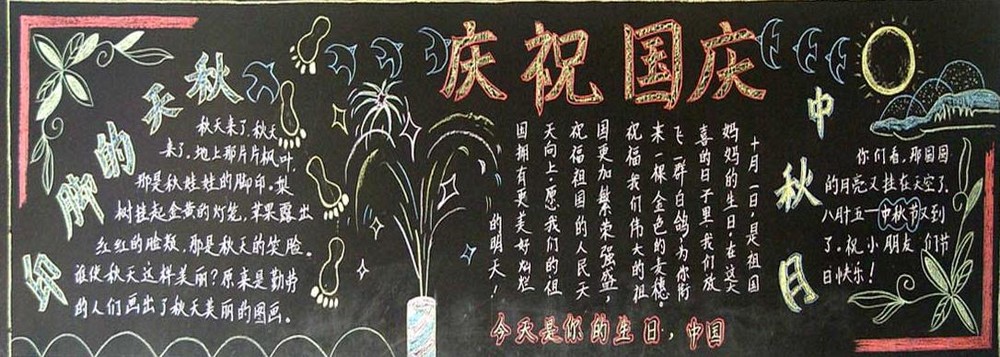 庆祝国庆
秋天的脚印
秋天来了,秋天
来了,地上那片片枫叶,
那是秋娃娃的脚印。果
树挂起金黄的灯笼,苹果露出
红红的脸颊,那是秋天的笑脸。
谁使秋天这样美丽?原来是勤劳
的人们画出了秋天美丽的图画。
十月一日,是祖国
妈妈的生日,在这大
喜的日子里,我们放
飞一群白鸽,为你衔
来一棵金色的麦穗。
祝福我们伟大的祖
国更加繁荣强盛,
祝福祖国的人民天
天向上,愿我们的但
国拥有更美好灿烂
的明天!
今天是你的生日,中国
中秋月
你们看,那圆圆
的月亮又挂在天空了,
八月十五一中秋节又到
了。祝小朋友们节
日快乐!